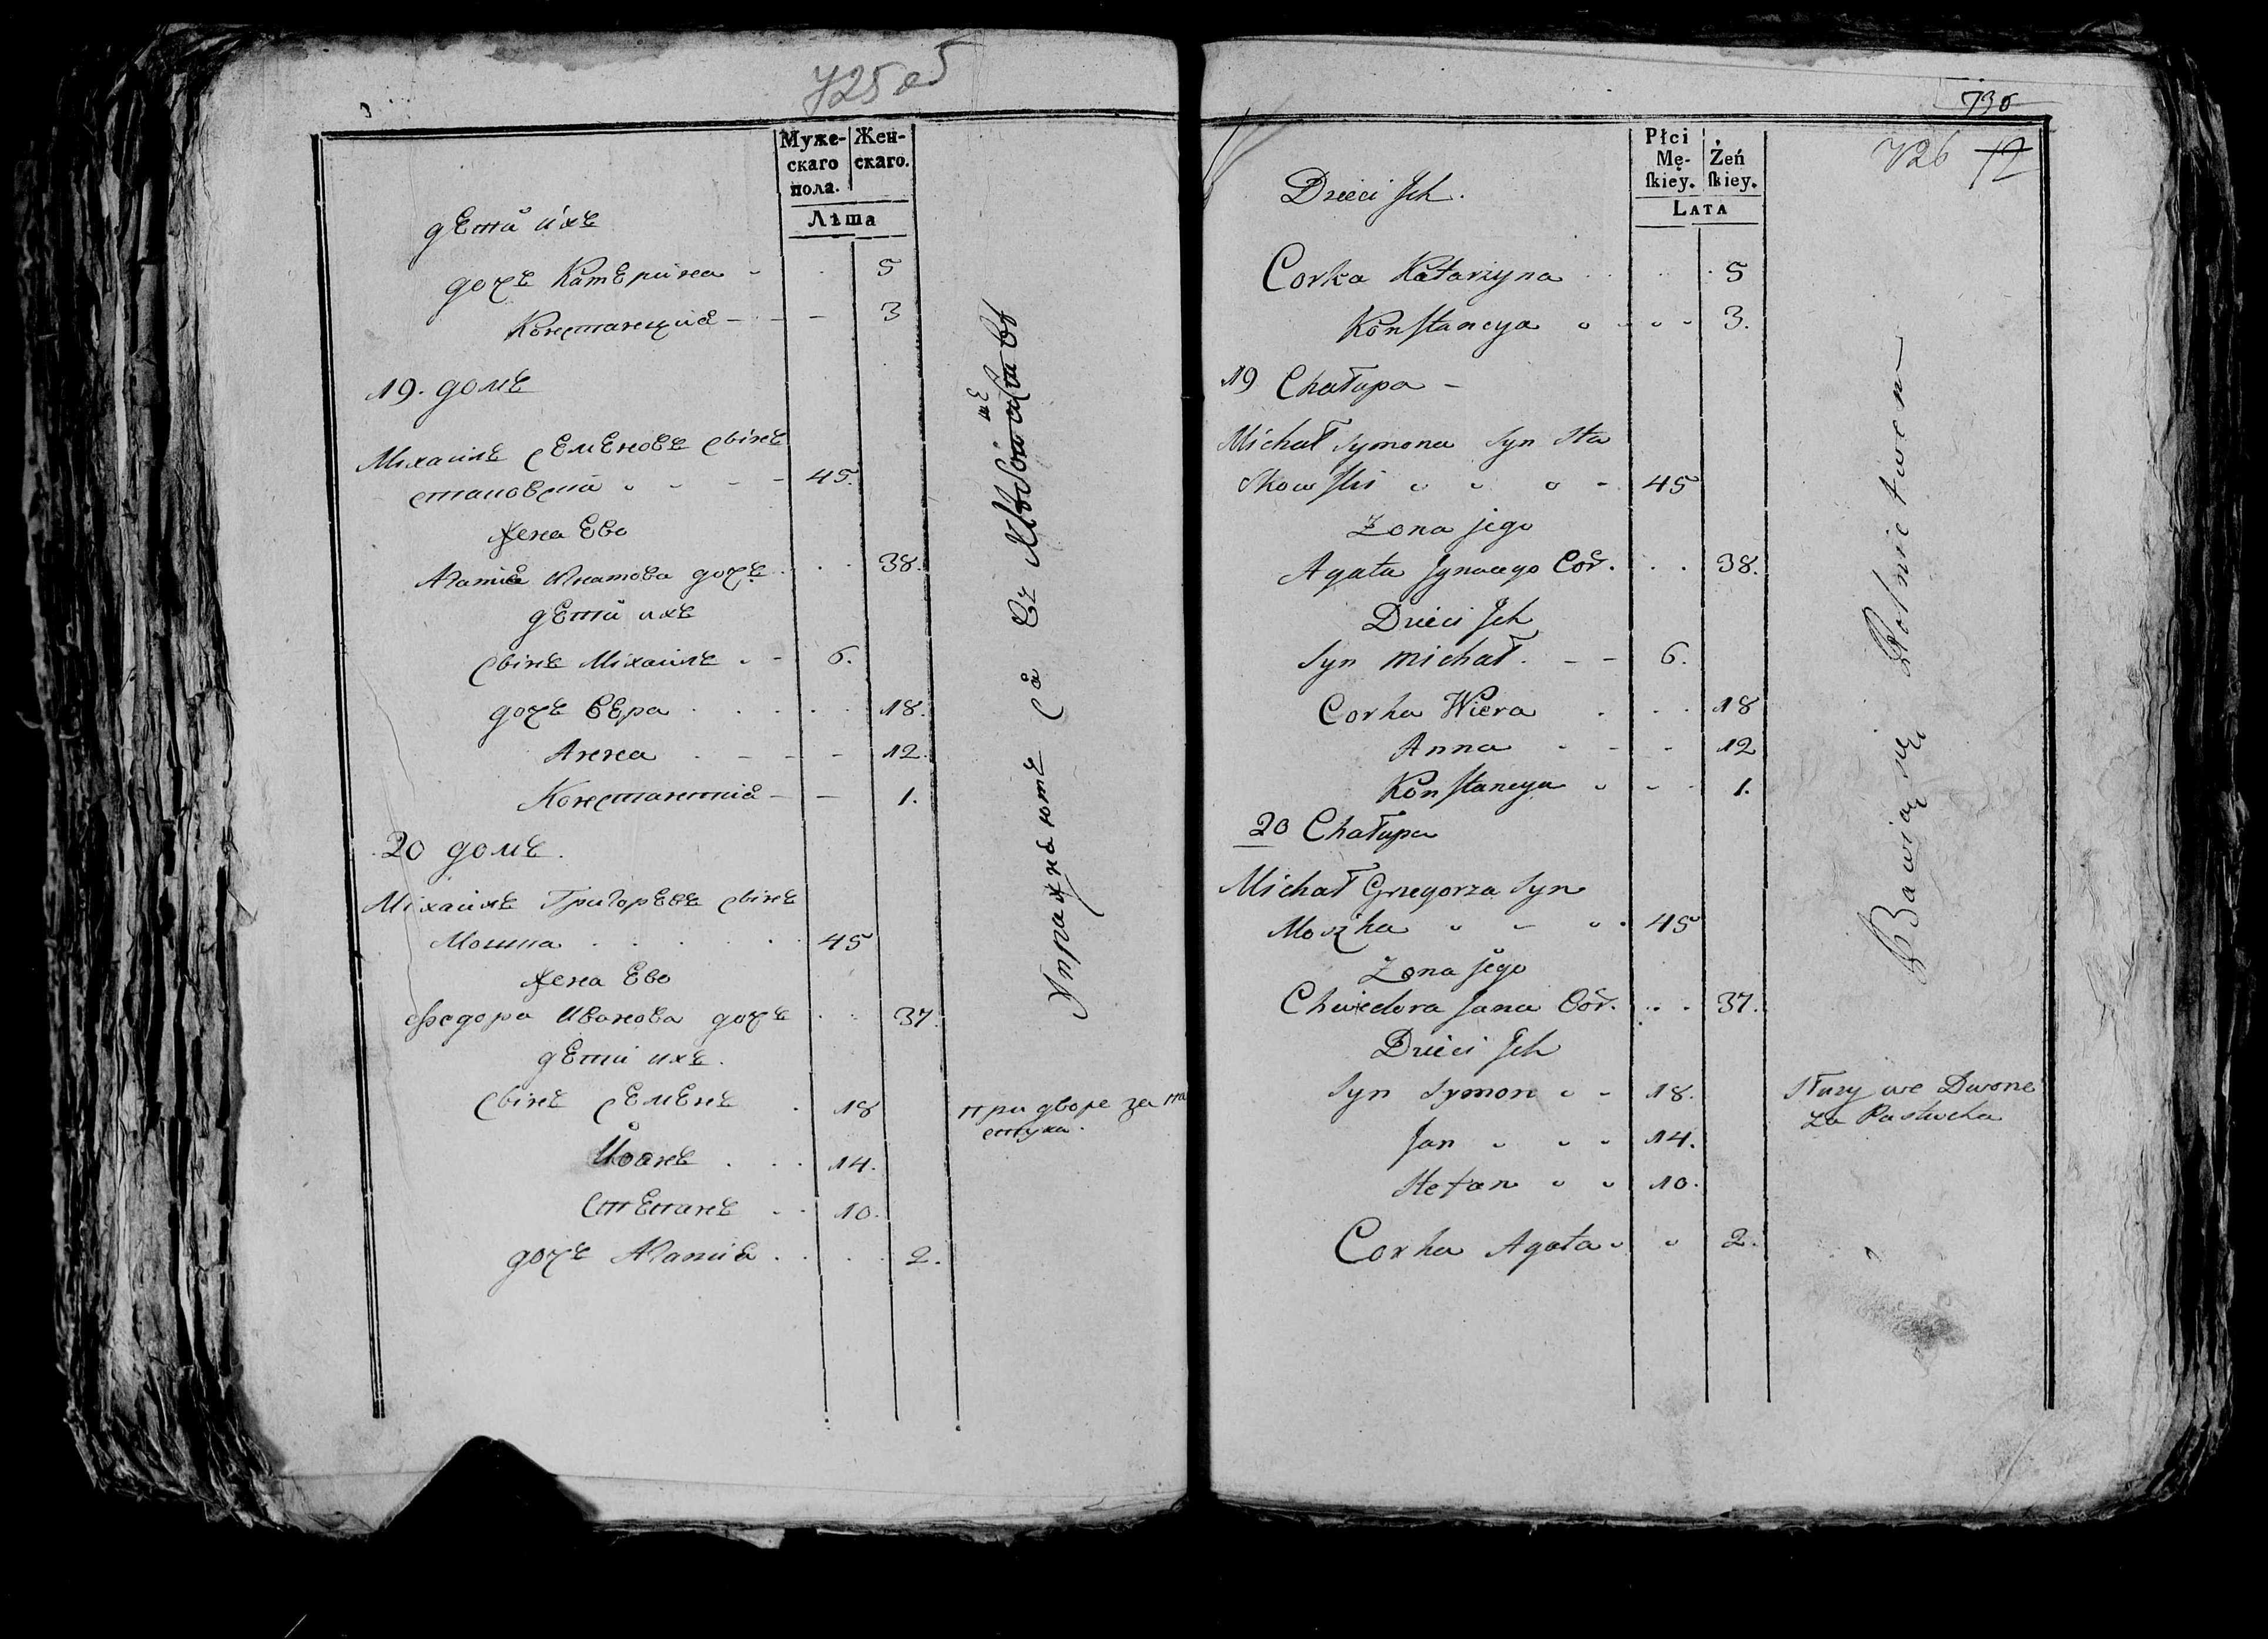 725 об
Муже- Жен-
скаго скаго.
пола.
Лѣта
дети ихъ
дочь Катерина 5
Констанция 3
19. домъ
Михаилъ Семеновъ сынъ
45.
жена Ево
Агатия Игнатова дочь 38.
дети ихъ
сынъ Михаилъ 6.
дочь Вера 18.
Анна 12.
Константия 1.
20 домъ.
Михаилъ Григорьевъ сынъ
Мошка 45
жена Ево
Федора Иванова дочь 37.
дети ихъ.
сынъ Семенъ 18
Иванъ 14.
Степанъ 10.
дочь Агатия 2.
Упражнаютъ ся въ
при дворе за па
стуха.
730
726 12
Płci
Mę- Żeń
skiey. skiey.
LATA
Dzieci Jch.
Corka Katarzyna 5
Konstancya 3.
19 Chałupa
Michał Symona Syn Sta
skowski 45
Zona jego
Agata Jgnacego Cor. 38.
Dzieci Jch
Syn Michał 6.
Corka Wiera 18
Anna 12
Konstancya 1.
20 Chałupa
Michał Grzegorza Syn
Moszka 45
Zona jego
Chwedora Jana Cor. 37.
Dzieci Jch
Syn Symon 18.
Jan 14.
Stefan 10.
Corka Agata 2.
Bawią się Rolnictwem
Służy we Dworze
za Pastucha